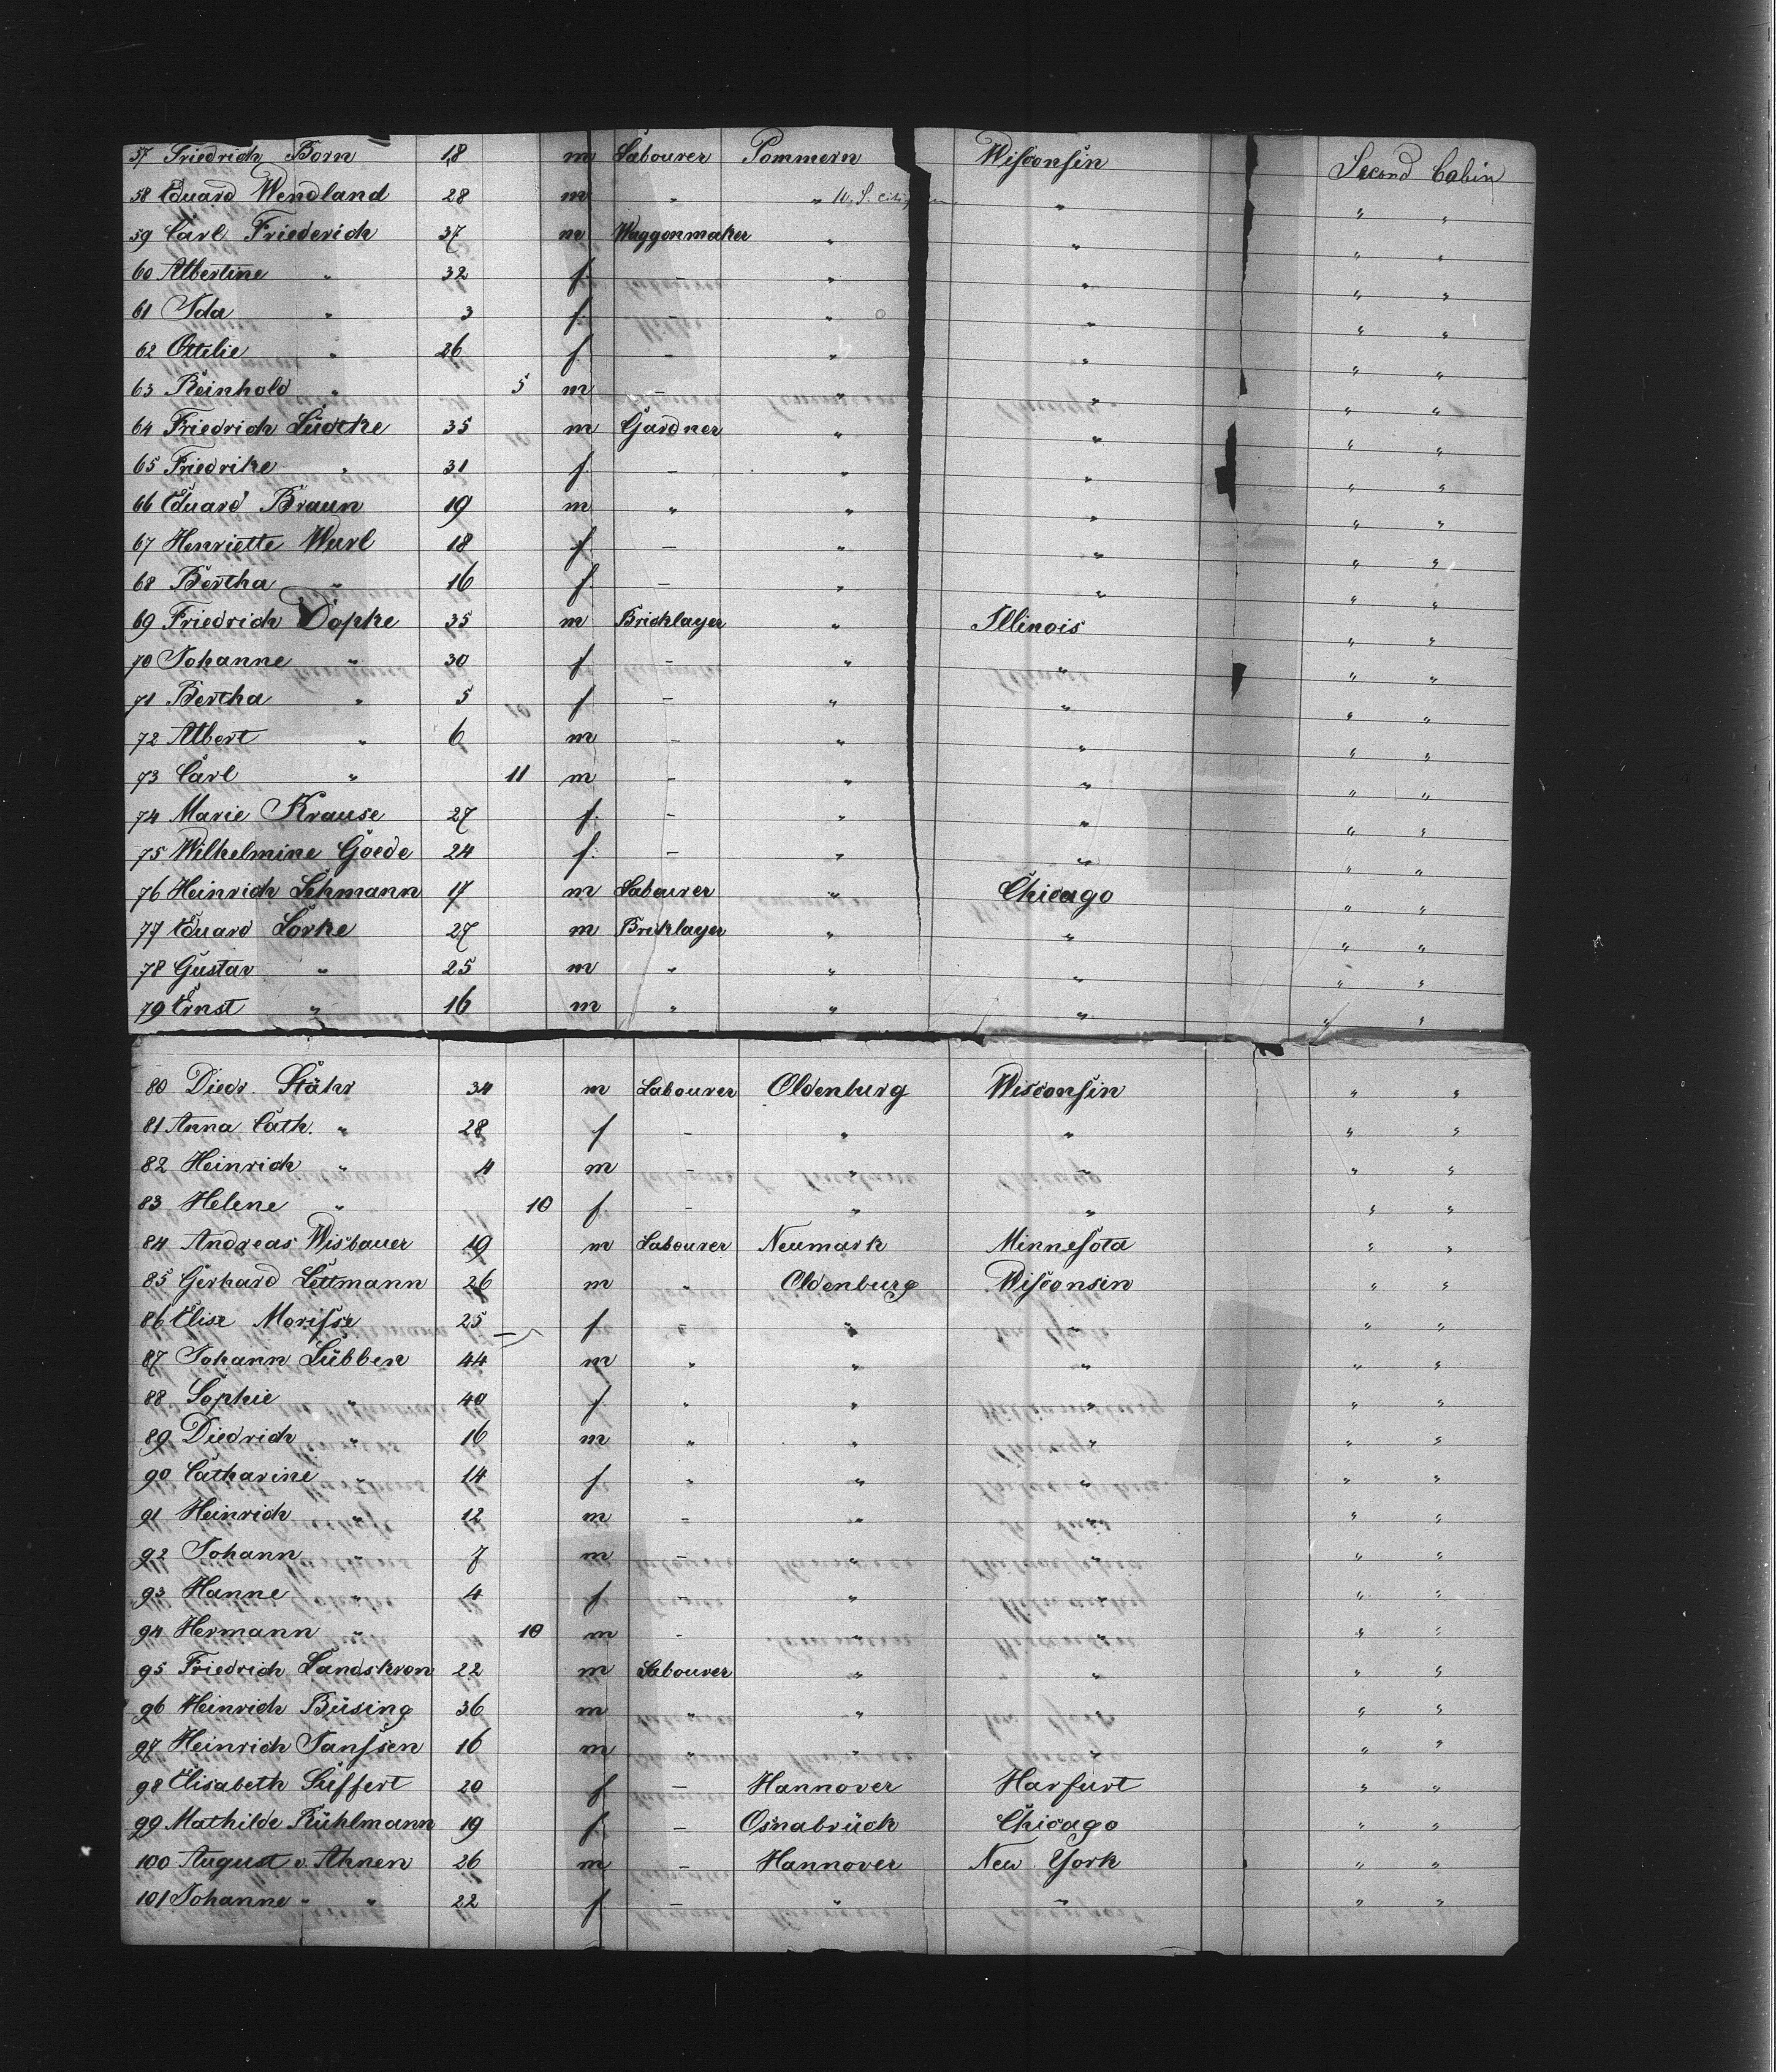 57 Friedrich Born 18 m Labourer Pommern Wisconsin Second Cabin
58 Eduard Wendland 28 m " " U.S. citizen " " "
59 Carl Friederich 37 m Waggonmaker " " " "
60 Albertine " 32 f. – " " " "
61 Ida " 3 f. – " " " "
62 Ottilie " 26 f. – " " " "
63 Reinhold " 5 m – " " " "
64 Friedrich Lüdtke 35 m Gardner " " " "
65 Friedrike " 31 f. – " " " "
66 Eduard Braun 19 m " " " " "
67 Henriette Wurl 18 f. – " " " "
68 Bertha " 16 f. – " " " "
69 Friedrich Döpke 35 m Bricklayer " Illinois " "
70 Johanne " 30 f. – " " " "
71 Bertha " 5 f – " " " "
72 Albert " 6 m – " " " "
73 Carl " 11 m – " " " "
74 Marie Krause 27 f. – " " " "
75 Wilhelmine Goede 24 f. – " " " "
76 Heinrich Lehmann 17 m Labourer " Chicago " "
77 Eduard Lörke 27 m Bricklayer " " " "
78 Gustav " 25 m " " " " "
79 Ernst " 16 m " " " " "
80 Diedr. Stähr 34 m Labourer Oldenburg Wisconsin " "
81 Anna Cath. " 28 f – " " " "
82 Heinrich " 4 m – " " " "
83 Helene " 10 f. – " " " "
84 Andreas Wisbauer 19 m Labourer Neumark Minnesota " "
85 Gerhard Lettmann 26 m " Oldenburg Wisconsin " "
86 Elise Morisse 25 f – " " " "
87 Johann Lübben 44 m " " " " "
88 Sophie " 40 f. " " " " "
89 Diedrich " 16 m " " " " "
90 Catharine " 14 f " " " " "
91 Heinrich " 12 m – " " " "
92 Johann " 7 m – " " " "
93 Hanne " 4 f – " " " "
94 Hermann " 10 m – " " " "
95 Friedrich Landskron 22 m Labourer " " " "
96 Heinrich Büsing 36 m " " " " "
97 Heinrich Janssen 16 m " " " " "
98 Elisabeth Siffert 20 f – Hannover Harfurt " "
99 Mathilde Rühlmann 19 f. – Osnabrück Chicago " "
100 August v. Ahnen 26 m – Hannover New York " "
101 Johanne " " 22 f – " " " "